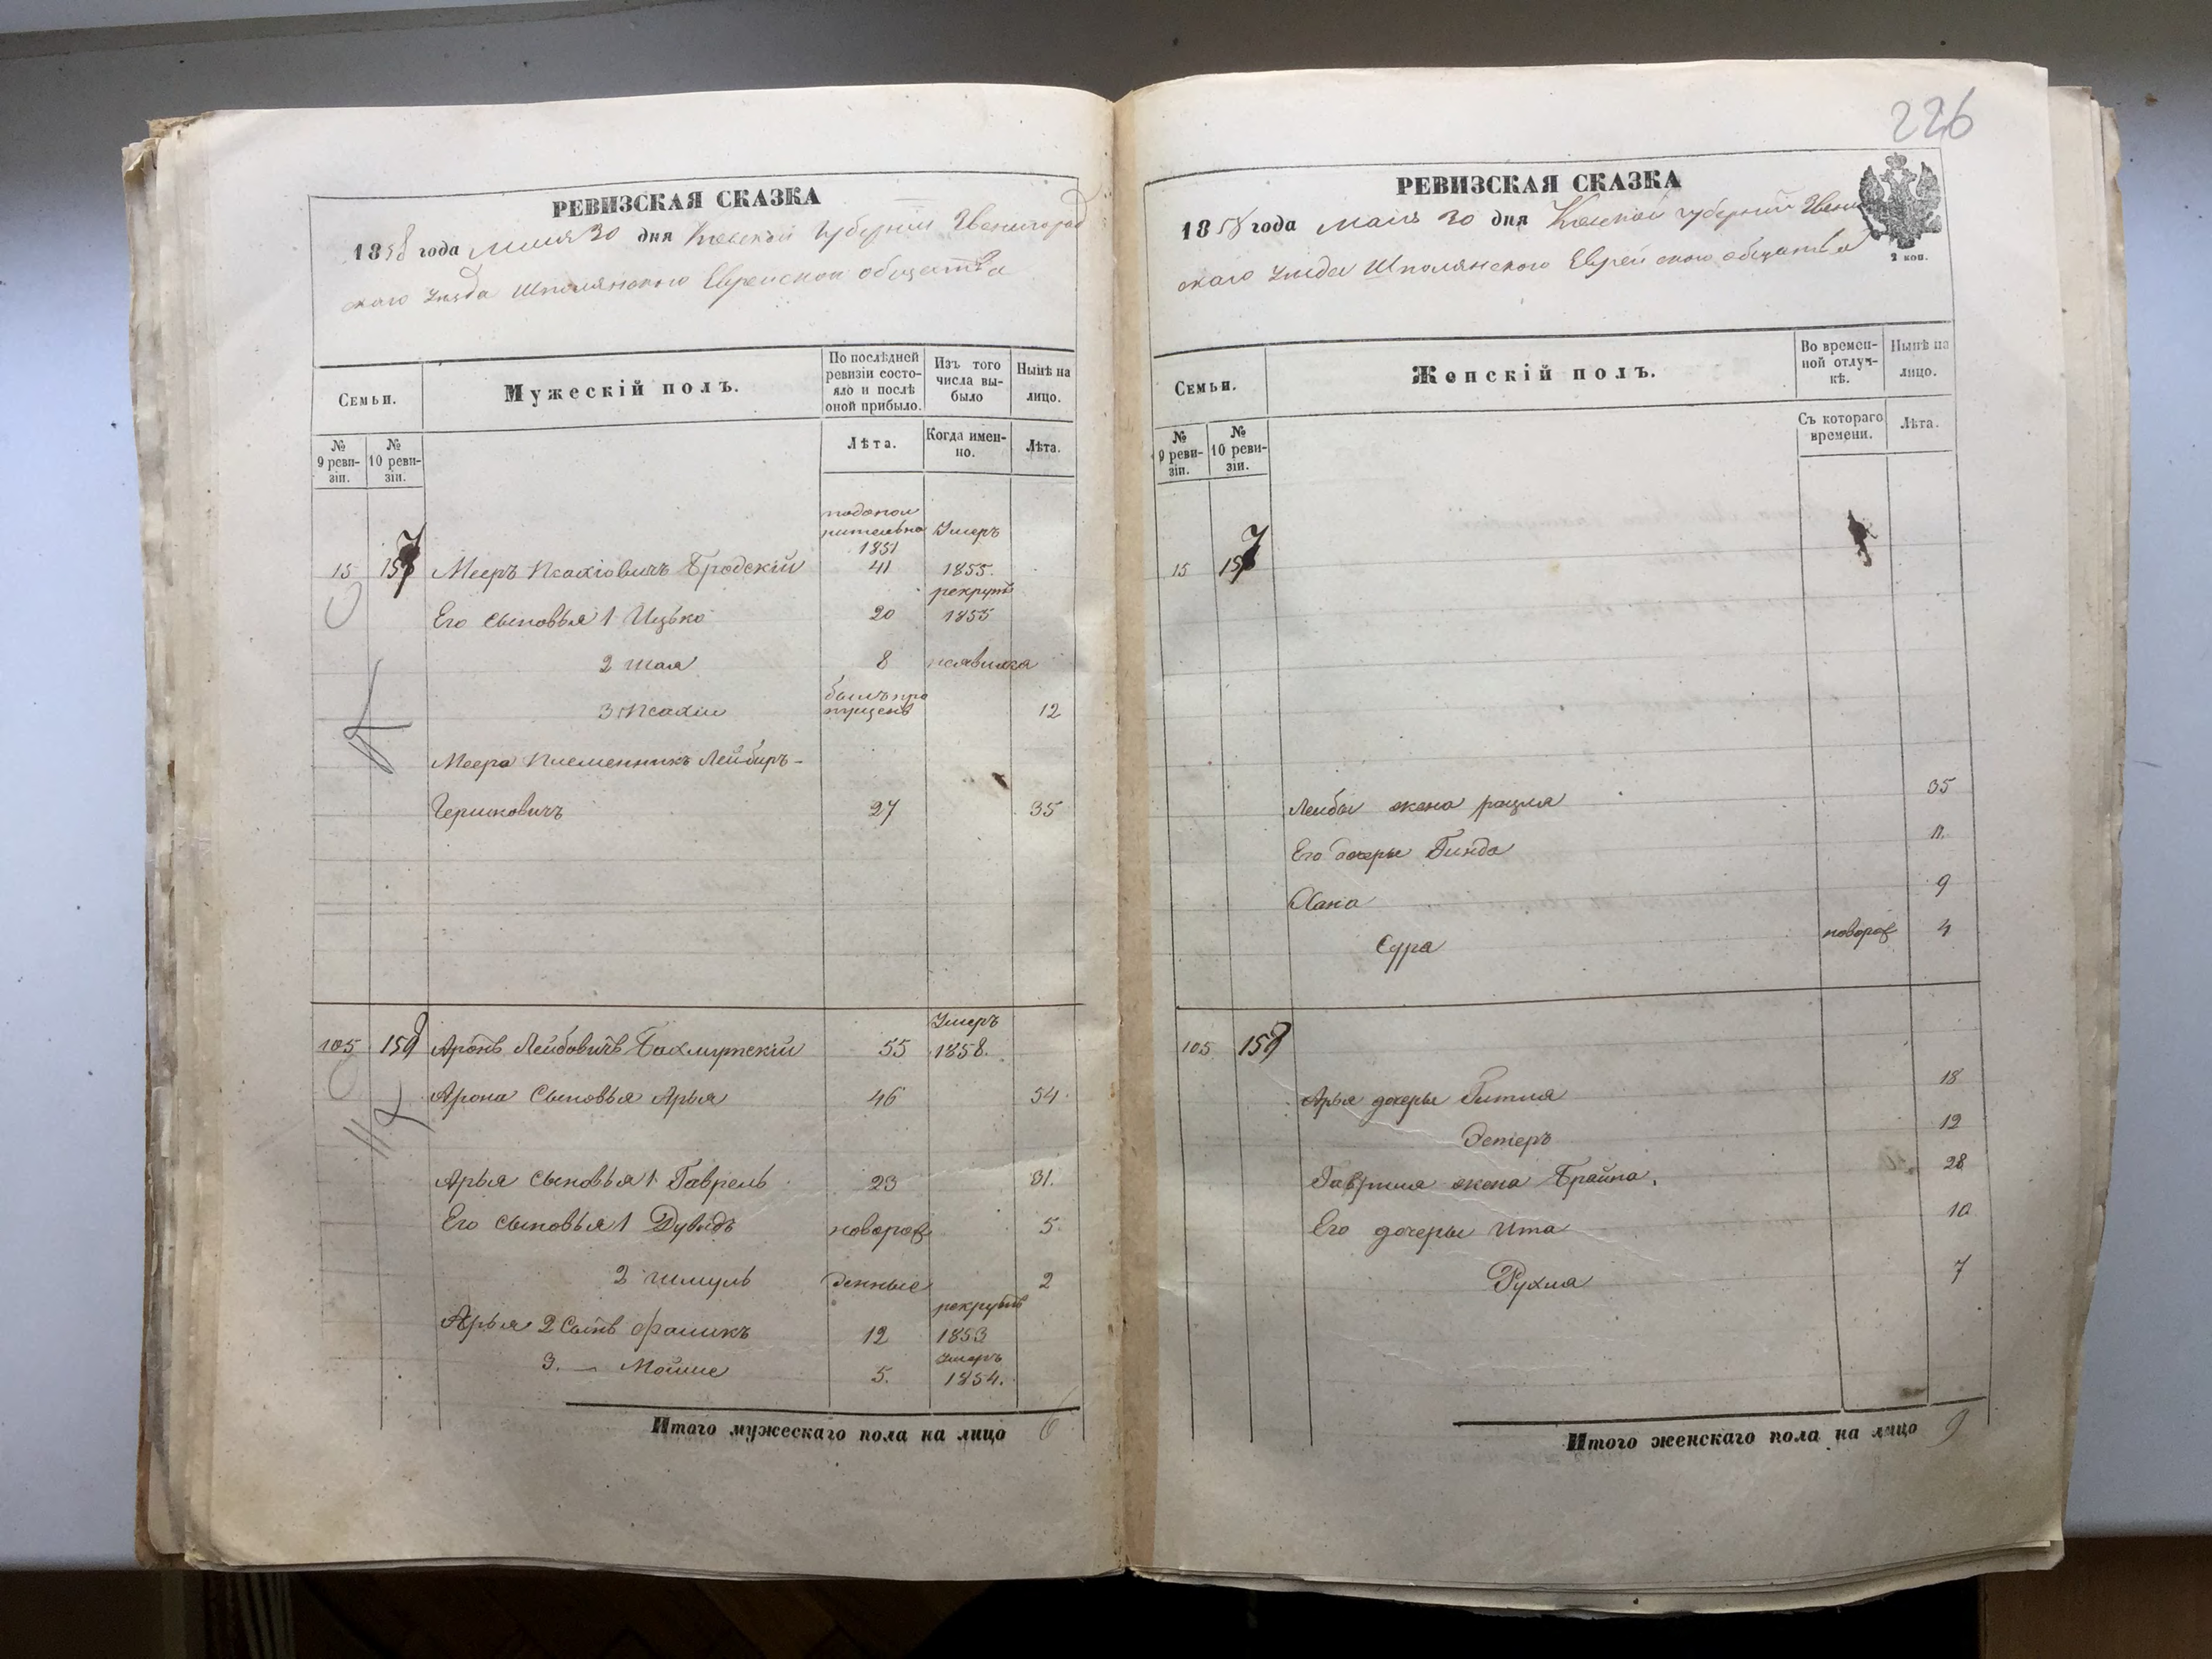 РЕВИЗСКАЯ СКАЗКА
1858 года мая 30 дня Киевской губернии Звенигород
скаго уезда Шполянского Еврейского общества
Семьи.
Мужескій полъ.
По послѣдней ревизіи состояло и послѣ оной прибыло.
Изъ того числа выбыло
Нынѣ на лицо.
№ 9 ревизіи.
№ 10 ревизіи.
Лѣта.
Когда именно.
Лѣта.
1851
Умеръ
15 157 Мееръ Псахіовичъ Бродскій 41 1855.
рекрутъ
Его сыновья 1 Ицько 20 1855
2 Шая 8 неявился
былъ про
3 Псахіи пущенъ 12
Меера племенникъ Лейбиръ-
Гершковичъ 27 35
Умеръ
105 158 Аронъ Лейбовичъ Бахмутскій 55 1858.
Арона Сыновья Арья 46 54.
Арья сыновья 1 Гаврель 23 31.
Его сыновья 1 Дувидъ новорож 5.
2 Шмуль денные 2
рекрутъ
Арья 2 Сынъ Фаликъ 12 1853
Умеръ
3. — Мойше 5. 1854.
Итого мужескаго пола на лицо 6
226
РЕВИЗСКАЯ СКАЗКА
1858 года мая 30 дня Киевской губернии Звени
скаго уезда Шполянского Еврейского общества
2 коп.
Семьи.
Женскій полъ.
Во временной отлучкѣ.
Нынѣ на лицо.
№ 9 ревизіи.
№ 10 ревизіи.
Съ котораго времени.
Лѣта.
15 157
Лейбы жена рацля 35
Его дочеры Гинда 11.
Хана 9
Сура новорож 4
105. 158
Арья дочеры Гитля 18
Эстеръ 12
Гавриля жена Брайна. 28
Его дочеры Ита 10
Рухля 7
Итого женскаго пола на лицо 9